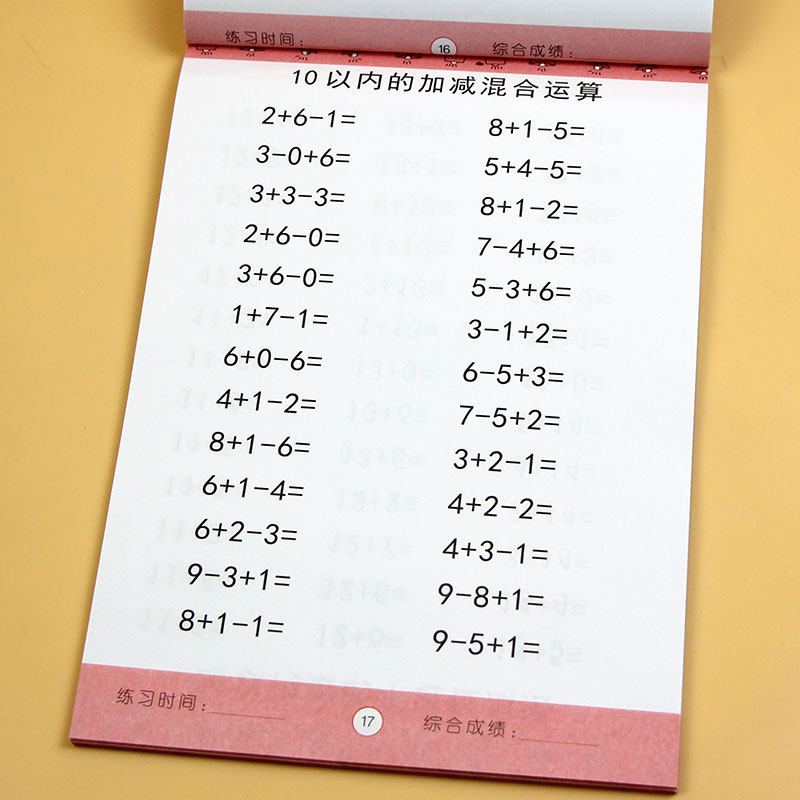 练习时间: 16 综合成绩:
10以内的加减混合运算
2+6-1= 8+1-5=
3-0+6= 5+4-5=
3+3-3= 8+1-2=
2+6-0= 7-4+6=
3+6-0= 5-3+6=
1+7-1= 3-1+2=
6+0-6= 6-5+3=
4+1-2= 7-5+2=
8+1-6= 3+2-1=
6+1-4= 4+2-2=
6+2-3= 4+3-1=
9-3+1= 9-8+1=
8+1-1= 9-5+1=
练习时间: 17 综合成绩: